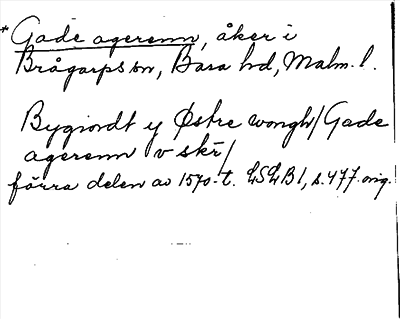 * Gade agerenn, åker i
Brågarps sn, Bara hd, Malm. l.
Bygiordt y Østre wongh/Gade
agerenn v skr/
förra delen av 1570-t. LSLB 1, s. 477 orig.